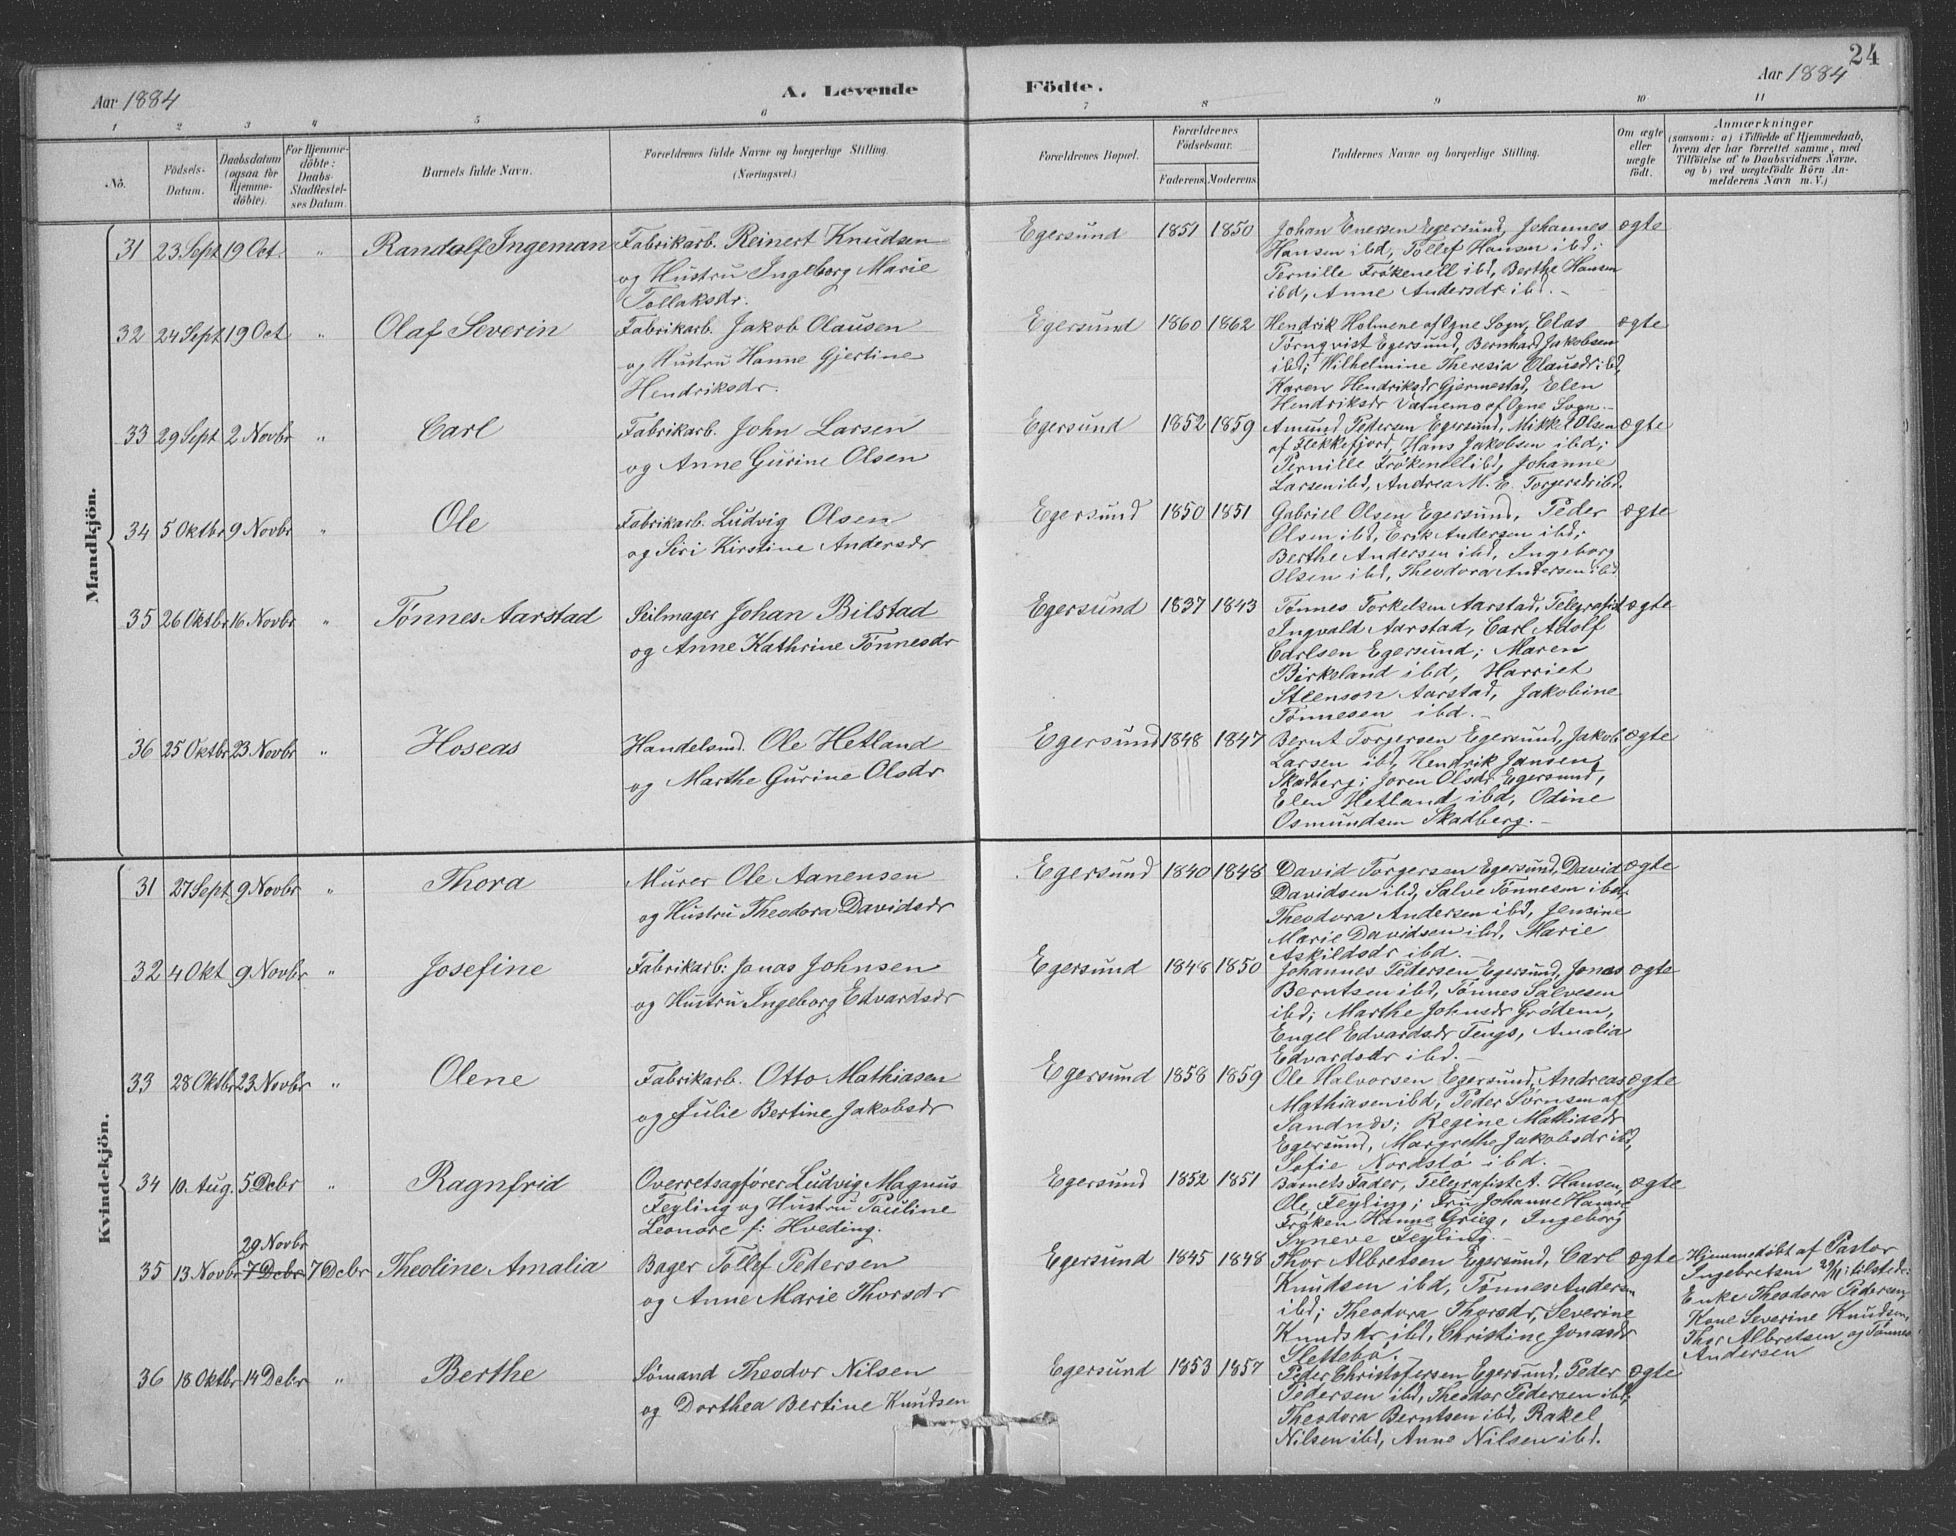 24
Aar 1884
A. Levende
Födte.
Aar 1884
1 2 3 4 5 6 7 8 9 10 11
No.
Födsels-
Datum.
Daabsdatum
(ogsaa for
Hjemme-
döbte).
For Hjemme-
döbte:
Daabs-
Stadfæstel-
ses Datum.
Barnets fulde Navn.
Forældrenes fulde Navne og borgerlige Stilling.
(Næringsvei.)
Forældrenes Bopæl.
Forældrenes
Födselsaar.
Faderens.
Moderens.
Faddernes Navne og borgerlige Stilling.
Om ægte
eller
uægte
födt.
Anmærkninger
(saasom: a) i Tilfælde af Hjemmedaab,
hvem der har forrettet samme, med
Tilföielse af to Daabsvidners Navne.
og b) ved uægtefödte Börn An-
melderens Navn m. V.)
Mandkjön.
31 23 Sept 19 Oct. " Randolf Ingeman
Fabrikarb. Reinert Knudsen
og Hustru Ingeborg Marie
Tollaksdr.
Egersund 1851 1850
Johan Enersen Egersund, Johannes
Hansen ibd, Tollef Hansen ibd;
Pernille Frøkenell ibd, Berthe Hansen
ibd, Anne Andersdr ibd. –
ægte
32 24 Sept 19 Oct " Olaf Severin
Fabrikarb. Jakob Olausen
og Hustru Hanne Gjertine
Hendriksdr.
Egersund 1860 1862
Hendrik Holmene af Ogne Sogn, Clas
Tørnqvist Egersund, Bernhard Jakobsen
ibd; Wilhelmine Theresia Olausdr ibd,
Karen Hendriksdr Gjermestad, Elen
Hendriksdr Vatnemo af Ogne Sogn. –
ægte
33 29 Sept 2 Novbr " Carl
Fabrikarb. John Larsen
og Anne Gurine Olsen
Egersund 1852 1859
Amund Pedersen Egersund, Mikkel Olsen
af Flekkefjord, Hans Jakobsen ibd;
Pernille Frøkenell ibd, Johanne
Larsen ibd, Andrea M. E. Torgersdr ibd.
ægte
34 5 Oktbr 9 Novbr " Ole
Fabrikarb. Ludvig Olsen
og Siri Kirstine Andersdr
Egersund 1850 1851
Gabriel Olsen Egersund, Peder
Olsen ibd, Erik Andersen ibd;
Berthe Andersen ibd, Ingeborg
Olsen ibd, Theodora Andersen ibd
ægte
35 26 Oktbr 16 Novbr " Tønnes Aarstad
Seilmager Johan Bilstad
og Anne Kathrine Tønnesdr
Egersund 1837 1843
Tønnes Torkelsen Aarstad, Telegrafist
Ingvald Aarstad, Carl Adolf
Carlsen Egersund; Maren
Birkeland ibd, Harriet
Steenson Aarstad, Jakobine
Tønnesen ibd. –
ægte
36 25 Oktbr 23 Novbr " Hoseas
Handelsmd. Ole Hetland
og Marthe Gurine Olsdr
Egersund 1848 1847
Bernt Torgersen Egersund, Jakob
Larsen ibd, Hendrik Jansen
Skadberg; Joren Olsdr Egersund,
Elen Hetland ibd, Odine
Osmundsen Skadberg. –
ægte
Kvindekjön.
31 27 Sept 9 Novbr " Thora
Murer Ole Aanensen
og Hustru Theodora Davidsdr
Egersund 1840 1848
David Torgersen Egersund, David
Davidsen ibd, Salve Tønnesen ibd;
Theodora Andersen ibd, Jensine
Marie Davidsen ibd, Marie
Askildsdr ibd. –
ægte
32 4 Okt 9 Novbr " Josefine
Fabrikarb: Jonas Johnsen
og Hustru Ingeborg Edvardsdr
Egersund 1848 1850
Johannes Pedersen Egersund, Jonas
Berntsen ibd, Tønnes Salvesen
ibd; Marthe Johnsdr Grødem,
Engel Edvardsdr Tengs, Amalia
Edvardsdr ibd. –
ægte
33 28 Oktbr 23 Novbr " Olene
Fabrikarb. Otto Mathiasen
og Julie Bertine Jakobsdr
Egersund 1858 1859
Ole Halvorsen Egersund, Andreas
Mathiasen ibd, Peder Sørnsen af
Sandnds; Regine Mathiasdr
Egersund, Margrethe Jakobsdr ibd,
Sofie Nordstø ibd. –
ægte
34 10 Aug. 5 Decbr " Ragnfrid
Overretsagfører Ludvig Magnus
Feyling og Hustru Pauline
Leonore f: Hveding.
Egersund 1852 1851
Barnets Fader, Telegrafist A. Hansen,
Ole Feyling; Fru Johanne Hansen
Frøken Hanne Grieg, Ingeborg
Syneve Feyling. –
ægte
35 13 Novbr 29 Novbr 7 Decbr 7 Decbr Theoline Amalia
Bager Tollef Pedersen
og Anne Marie Thorsdr
Egersund 1845 1848
Thor Albretsen Egersund, Carl
Knudsen ibd, Tønnes Andersen
ibd; Theodora Thorsdr, Severine
Knudsdr ibd, Christine Jonasdr
Slettebø. –
ægte
Hjemmedøbt af Pastor
Ingebretsen 29/11; tilstede:
Enke Theodora Pedersen,
Kone Severine Knudsen,
Thor Albretsen og Tønnes
Andersen
36 18 Oktbr 14 Decbr " Berthe
Sømand Theodor Nilsen
og Dorthea Bertine Knudsen
Egersund 1853 1857
Peder Christofersen Egersund, Peder
Pedersen ibd, Theodor Pedersen ibd,
Theodora Berntsen ibd, Rakel
Nilsen ibd, Anne Nilsen ibd.
ægte